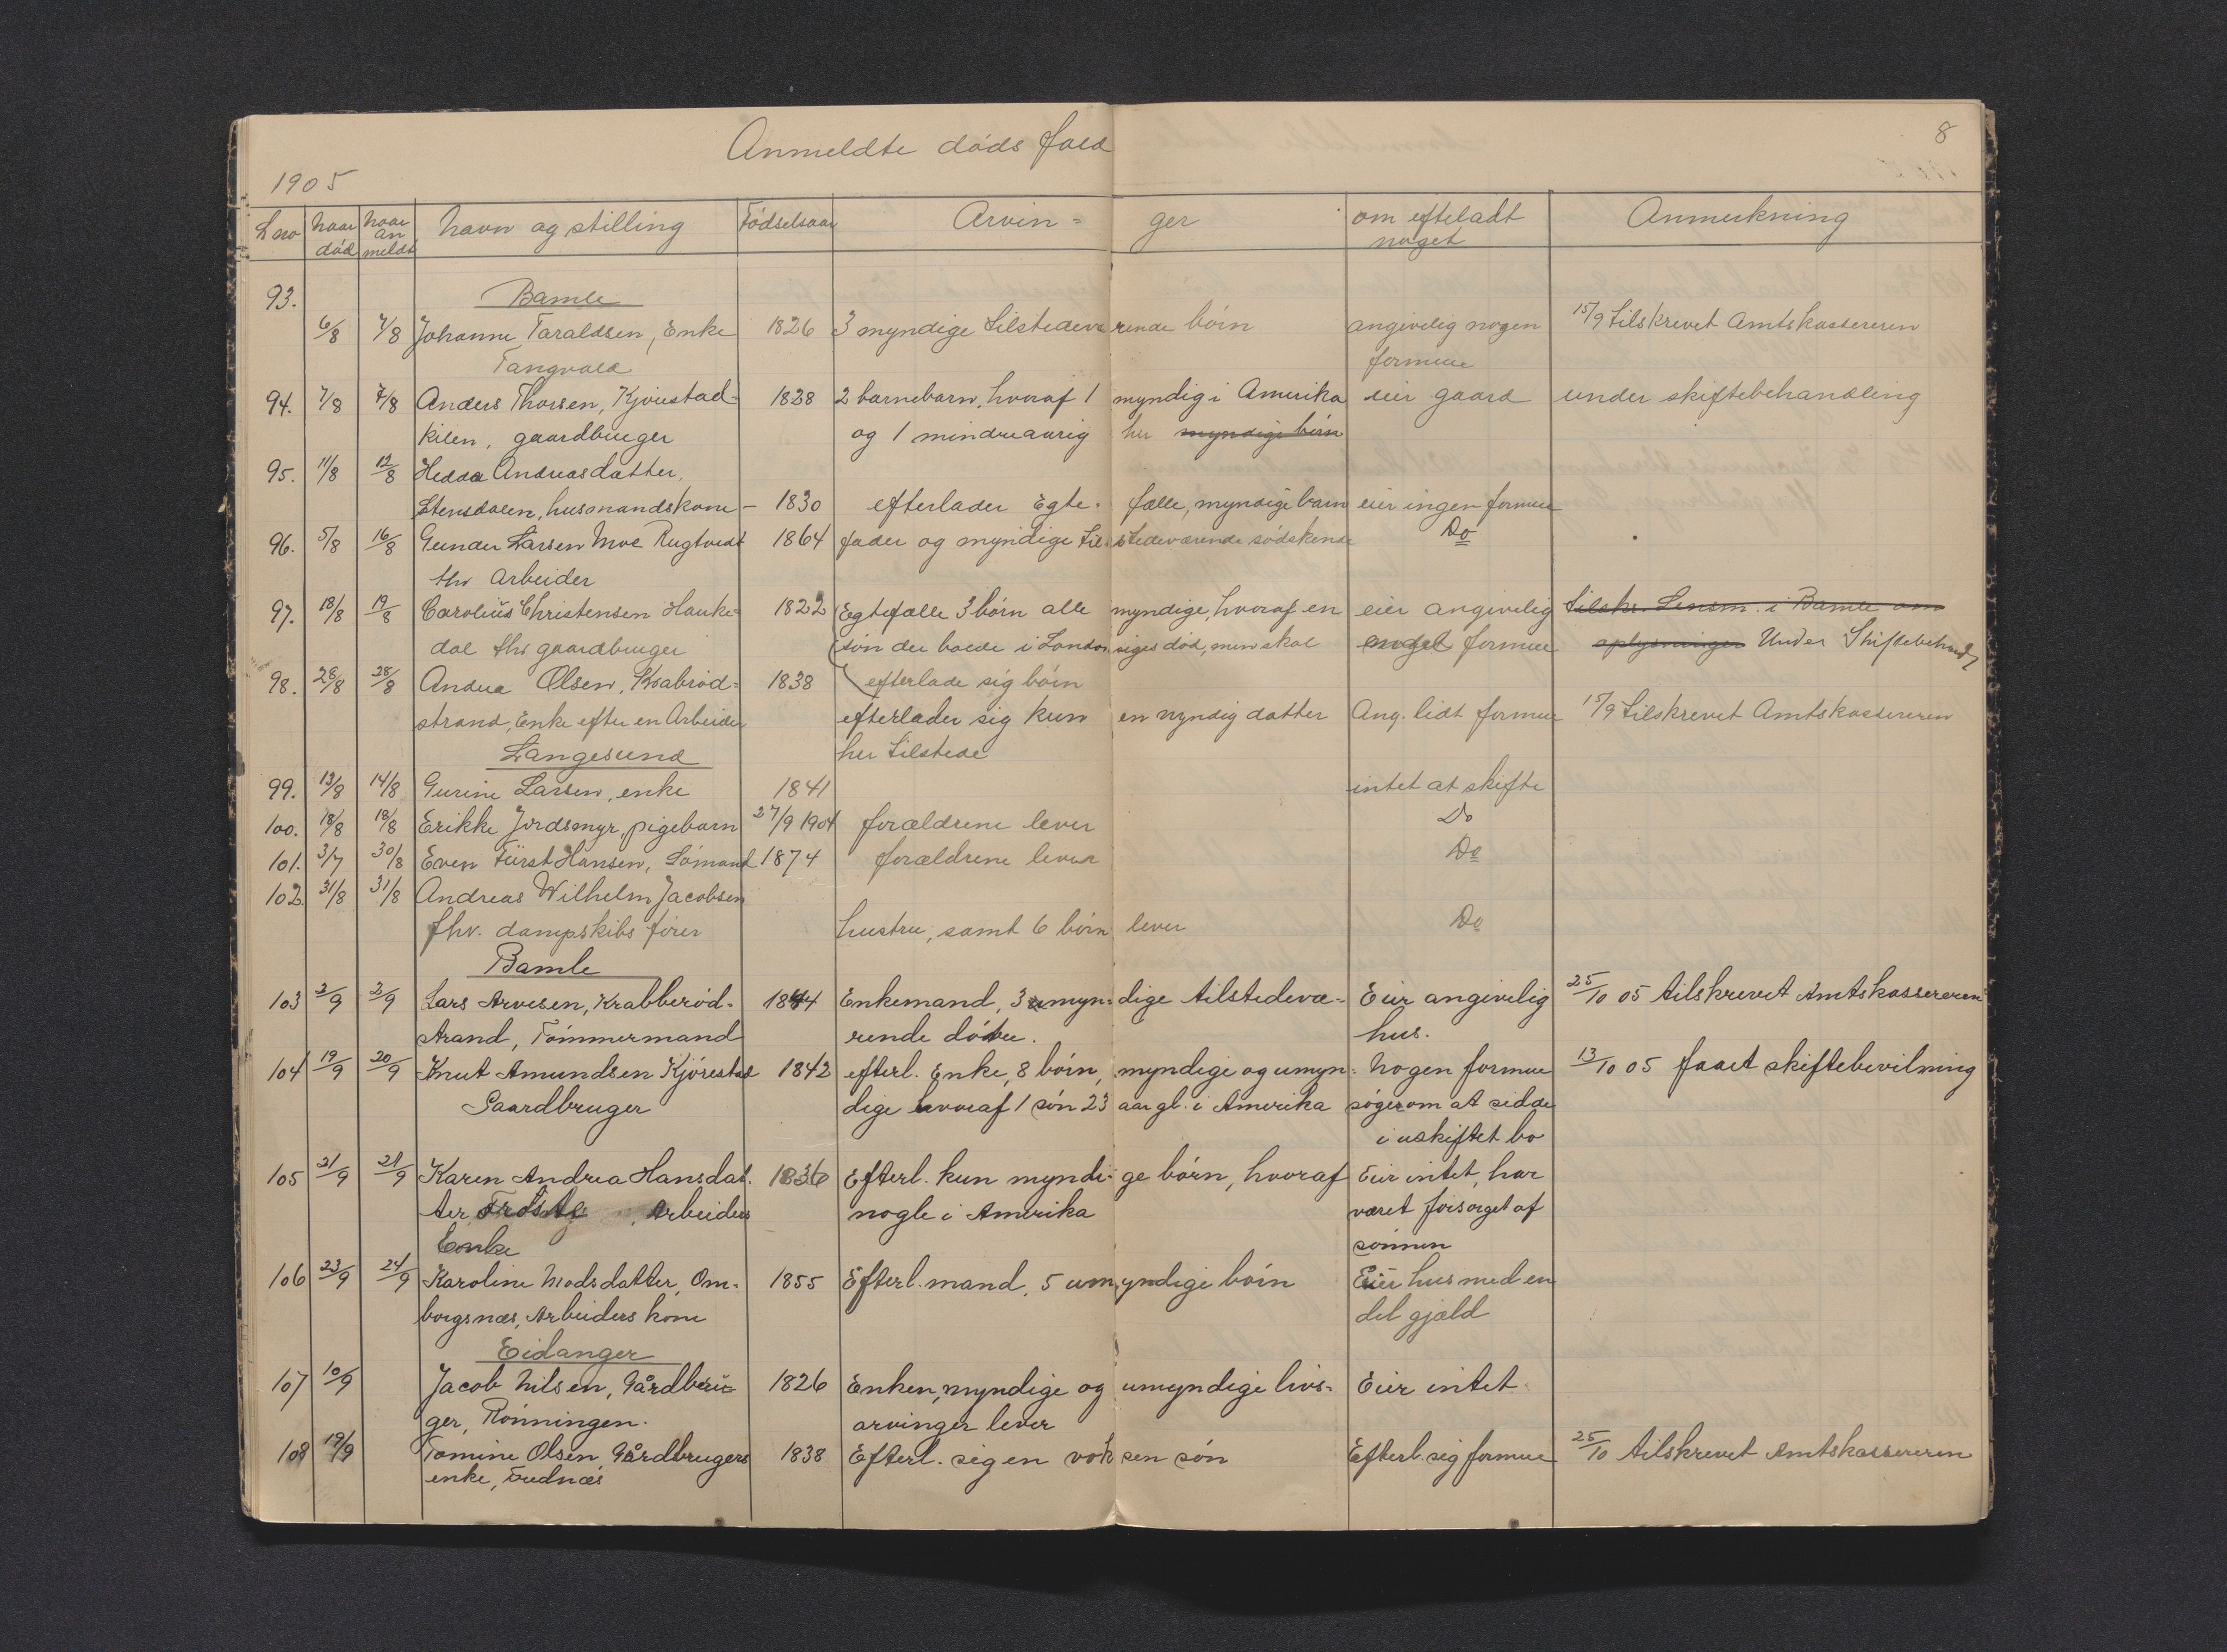 8
Anmeldte døds fald
1905
L no naar død naar an meldt Navn og stilling Fødselsaar Arvin= ger om efteladt noget Anmerkning
Bamle
93. 6/8 7/8 Johanne Taraldsen, Enke 1826 3 myndige tilstedeværende børn angivelig nogen 15/9 tilskrevet Amtskassereren
Tangvald formue
94. 7/8 7/8 Anders Thorsen, Kjønstad= 1828 2 barnebarn, hvoraf 1 myndig i Amerika eier gaard under skiftebehandling
kilen, gaardbruger og 1 mindreaarig her myndige børn
95. 11/8 12/8 Hedda Andreasdatter,
Stensdalen, husmandskone - 1830 efterlader Egte- fælle, myndige barn eier ingen formue
96. 5/8 16/8 Gunder Larsen Moe Rugtvedt 1864 fader og myndige tilstedeværende sødskende Do
fhv arbeider
97. 18/8 19/8 Carolius Christensen Hauke= 1822 Egtefælle 3 børn alle myndige, hvoraf en eier angivelig tilskr. Lensm. i Bamle om
dal fhv gaardbruger søn der boede i London siges død, men skal noget formue oplysninger Under Skiftebehandl
98. 26/8 28/8 Andrea Olsen, Krabrød= 1838 efterlade sig børn
strand, Enke efter en Arbeider efterlader sig kun en myndig datter Ang. lidt formue 15/9 tilskrevet Amtskassereren
Langesund her tilstede
99. 13/8 14/8 Gurine Larsen, enke 1841 intet at skifte
100. 18/8 18/8 Erikke Jordsmyr, pigebarn 27/9 1904 forældrene lever Do
101. 3/7 30/8 Even Fürst Hansen, Sømand 1874 forældrene lever Do
102. 31/8 31/8 Andreas Wilhelm Jacobsen
fhv. dampskibs fører hustru, samt 6 børn lever Do
Bamle
103 2/9 2/9 Lars Arvesen, Krabberød- 1844 Enkemand, 3 umyn= dige tilstedevæ- Eier angivelig 25/10 05 tilskrevet Amtskassereren
strand, Tømmermand rende døtre. hus.
104 19/9 20/9 Knut Amundsen Kjørestad 1842 efterl. Enke, 8 børn, myndige og umyn- Nogen formue 13/10 05 faaet skiftebevilning
Gaardbruger dige hvoraf 1 søn 23 aar gl. i Amerika søger om at sidde
i uskiftet bo
105 21/9 21/9 Karen Andrea Hansdat- 1836 Efterl. kun myndi- ge børn, hvoraf Eier intet, har
ter Trosvik, Arbeiders nogle i Amerika været forsørget af
Enke sønnen
106 23/9 24/9 Karoline Madsdatter, Om- 1855 Efterl. mand, 5 umyndige børn Eier hus med en
borgsnæs, Arbeiders kone del gjæld
Eidanger
107 10/9 Jacob Nilsen, Gårdbru- 1826 Enken, myndige og umyndige livs- Eier intet
ger, Rønningen. arvinger lever
108 19/9 Tomine Olsen, Gårdbrugers 1838 Efterl. sig en voksen søn Efterl. sig formue 25/10 tilskrevet Amtskassereren
enke, Tudnæs